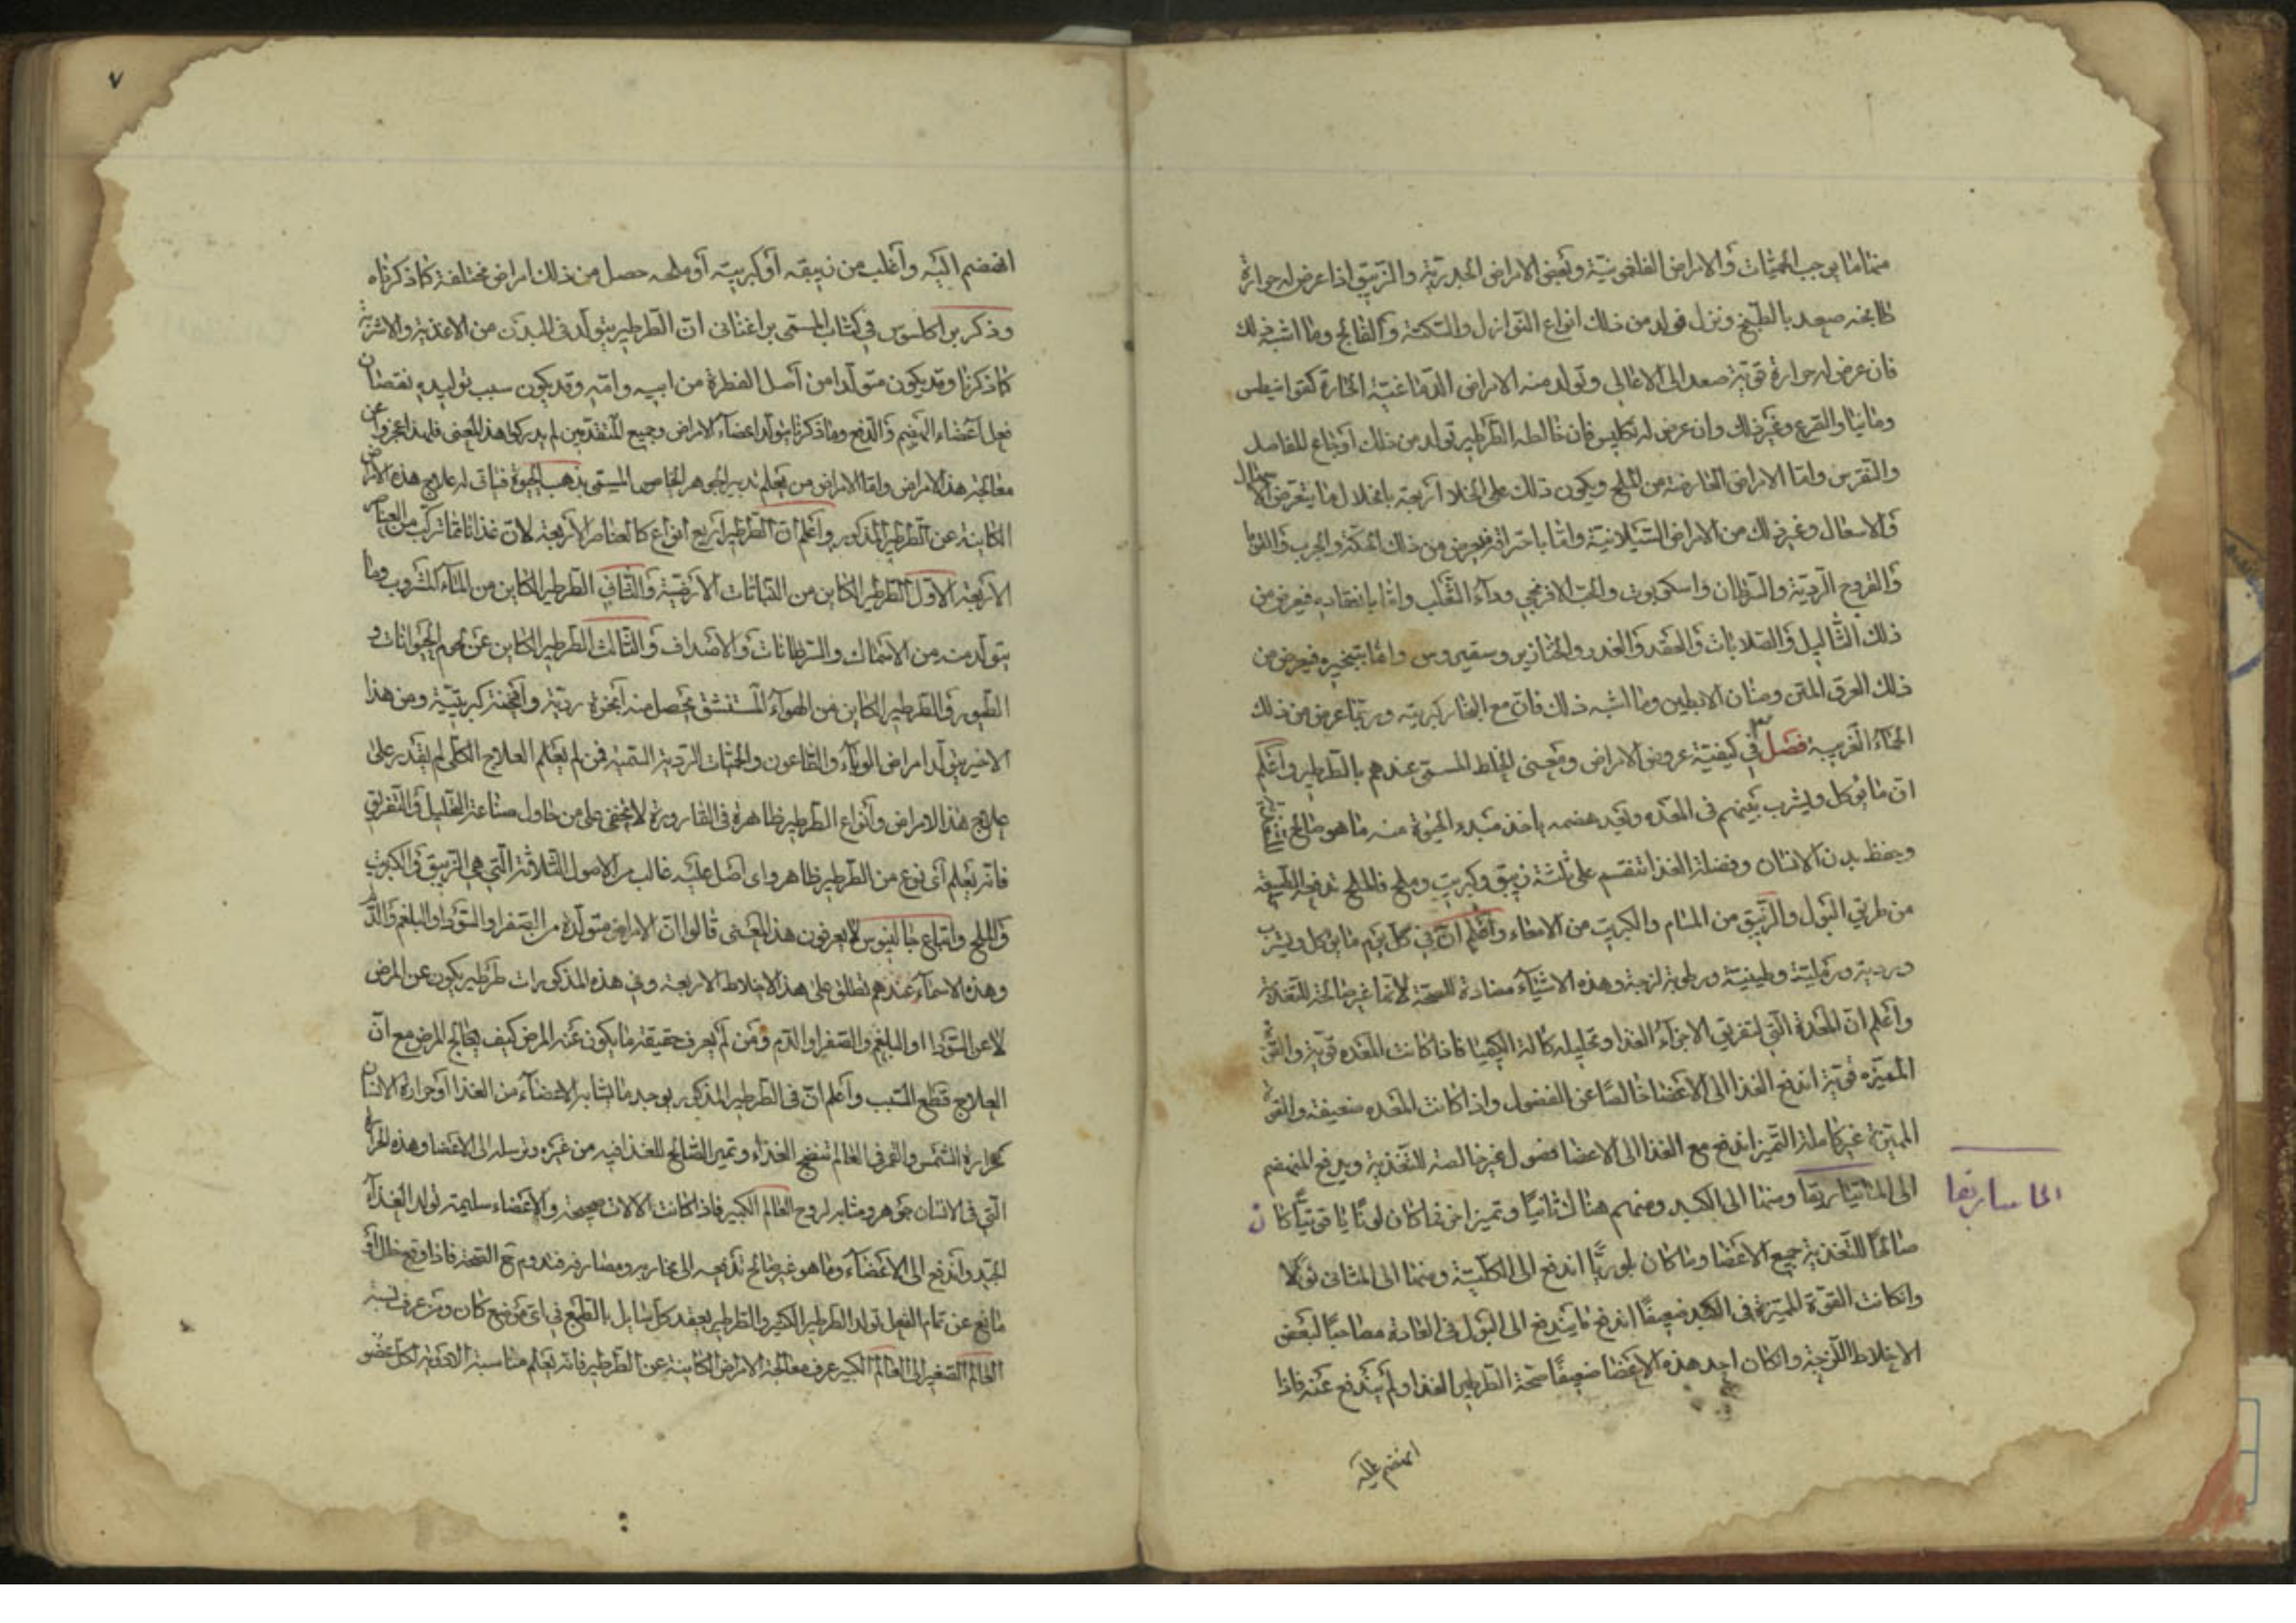 منها ما يوجب الحميات والامراض الفلغمونية وبعض الامراض الجدرية والزيبق اذا عرض له حرارة
طابخه صعد بالطبخ ونزل فولد من ذلك انواع النوازل والسكتة والفالج وما اشبه ذلك
فان عرض له حرارة قوية صعد الى الاعالي وتولد منه الامراض الدماغية الحارة كقرانيطس
ومانيا والقرع وغير ذلك وان عرض له تكليس فان خالطه الطرطير تولد من ذلك اوجاع المفاصل
والنقرس واما الامراض العارضة من الملح ويكون ذلك على انحلا اربعة بانحلال ما يتعرض الاسهال
والاسعال وغير ذلك من الامراض السيلانية واما باحتراقه فيعرض من ذلك الحكة والجرب والقوبا
والقروح الردية والسرطان واسكربوت والحب الافرنجي وداء الثعلب واما بانعقاده فيعرض من
ذلك الثاليل والصلابات والعقد والغدد والخنازير وسقيروس واما بتبخيره فيعرض من
ذلك العرق المنتن وصنان الابطين وما اشبه ذلك فان مع البخار كبريتيه وربما عرض من ذلك
الحماء الغريبة فصل في كيفية عروض الامراض ومعنى الخلط المسمى عندهم بالطرطير واعلم
ان ما يوكل ويشرب ينهضم فى المعده وبعد هضمه ياخذ مبدء الحيوة منه ما هو صالح
ويحفظ بدن الانسان وفضلة الغذا تنقسم على ثلثة زيبق وكبريت وملح فالملح تدفعه الطبيعة
من طريق البول والزيبق من المسام والكبريت من الامعاء واعلم ان في كل يوم ما يوكل ويشرب
وردية ورملية وطينية ورطوبة لزجة وهذه الاشياء مضادة للصحة لانها غير صالحة للتغدية
واعلم ان المعدة التي لتفريق الاجزاء الغذا وتحليله كالة الكيميا فاذا كانت المعده قوية والقوة
المميزه قوية اندفع الغذا الى الاعضا خالصا عن الفضول واذا كانت المعده ضعيفة والقوة
المميزة غير كاملة التميز اندفع مع الغذا الى الاعضا فضول غير خالصة للتغذية ويدفع المنهضم
الى الماساريقا ومنها الى الكبد وينهضم هناك ثانيا وتميز اخر فما كان لونا يا قوتيا كان
الماساريقا
صالحا للتغذية جميع الاعضا وما كان بلوريا اندفع الى الكلية ومنها الى المثانى بولا
وانكانت القوة المميزة في الكبد ضعيفا اندفع ما يندفع الى البول في العادة مصاحبا لبعض
الاخلاط اللزجة وانكان احد هذه الاعضا ضعيفا صحة الطرطير الغذا ولم يندفع عنه فاذا
انهضم عليه
٧
انهضم اليه واغلب من زيبقه او كبريته او ملحه حصل من ذلك امراض مختلفة كما ذكرناه
وذكر براكلسوس في كتاب المسمى براغنانى ان الطرطير يتولد فى البدن من الاغذية والاشربة
كما ذكرنا وقد يكون متولدا من اصل الفطرة من ابيه وامه وقد يكون سبب توليده نقصان
فعل اعضاء الهضم والدفع وما ذكرنا يتولد اعضاء الامراض وجميع المتقدمين لم يدركوا هذا المعنى فلهذا عجزوا عن
معالجة هذا الامراض واما الامراض من يعلم تدبير الجوهر الخاص المسمى بذهب الحيوة فياتى له علاج هذه الامراض
الكاينة عن الطرطير المذكور واعلم ان الطرطير اربع انواع كالعناصر الاربعة لان غذانا مما تركب من العناصر
الاربعة الاول الطرطير الكاين من النباتات الارضية والثاني الطرطير الكاين من الماء المشروب وما
يتولد منه من الاسماك والسرطانات والاصداف والثالث الطرطير الكاين عن لحوم الحيوانات و
الطيور والطرطير الكاين من الهواء المستنشق يحصل منه ابخرة ردية وادخنة كبريتية ومن هذا
الاخير يتولد امراض الوباء والطاعون والحميات الردية السمية فمن لم يعلم العلاج الكلى لم يقدر على
علاج هذا الامراض وانواع الطرطير ظاهرة فى القارورة لا يخفى على من حاول صناعة التحليل والتفريق
فانه يعلم اى نوع من الطرطير ظاهر واى اصل عليه غالب من الاصول الثلاثة التي هي الزيبق والكبريت
والملح واتباع جالينوس لا يعرفون هذا المعنى قالوا ان الامراض متولدة من الصفرا والسودا والبلغم والدم
وهذه الاسماء عندهم تطلق على هذا الاخلاط الاربعة وفي هذه المذكورات طرطير يكون عن المرض
لا عن السودا او البلغم والصفرا والدم ومن لم يعرف حقيقة ما يكون عنه المرض كيف يعالج المرض مع ان
العلاج قطع السبب واعلم ان فى الطرطير المذكور يوجد ما يشابه الاعضاء من الغذا او حرارة الانسان
كحرارة الشمس والقمر فى العالم تنضج الغذاء وتميز الصالح للغذا فيه من غيره وترسله الى الاعضا وهذه الحرارة
التي في الانسان جوهر ومشابه لروح العالم الكبير فاذا كانت الالات صحيحة والاعضاء سليمة تولد الغذاء
الجيد واندفع الى الاعضاء وما هو غير صالح تدفعه الى مخارجه ومصارفه فتدوم مع الصحة فاذا وقع خلل او
مانع عن تمام الفعل تولد الطرطير الكثير والطرطير يعقد كل سايل بالطبع في اى موضع كان ومن عرف نسبة
العالم الصغير الى العالم الكبير عرف معالجة الامراض الكاينة عن الطرطير فانه يعلم مناسبة الادوية لكل عضو